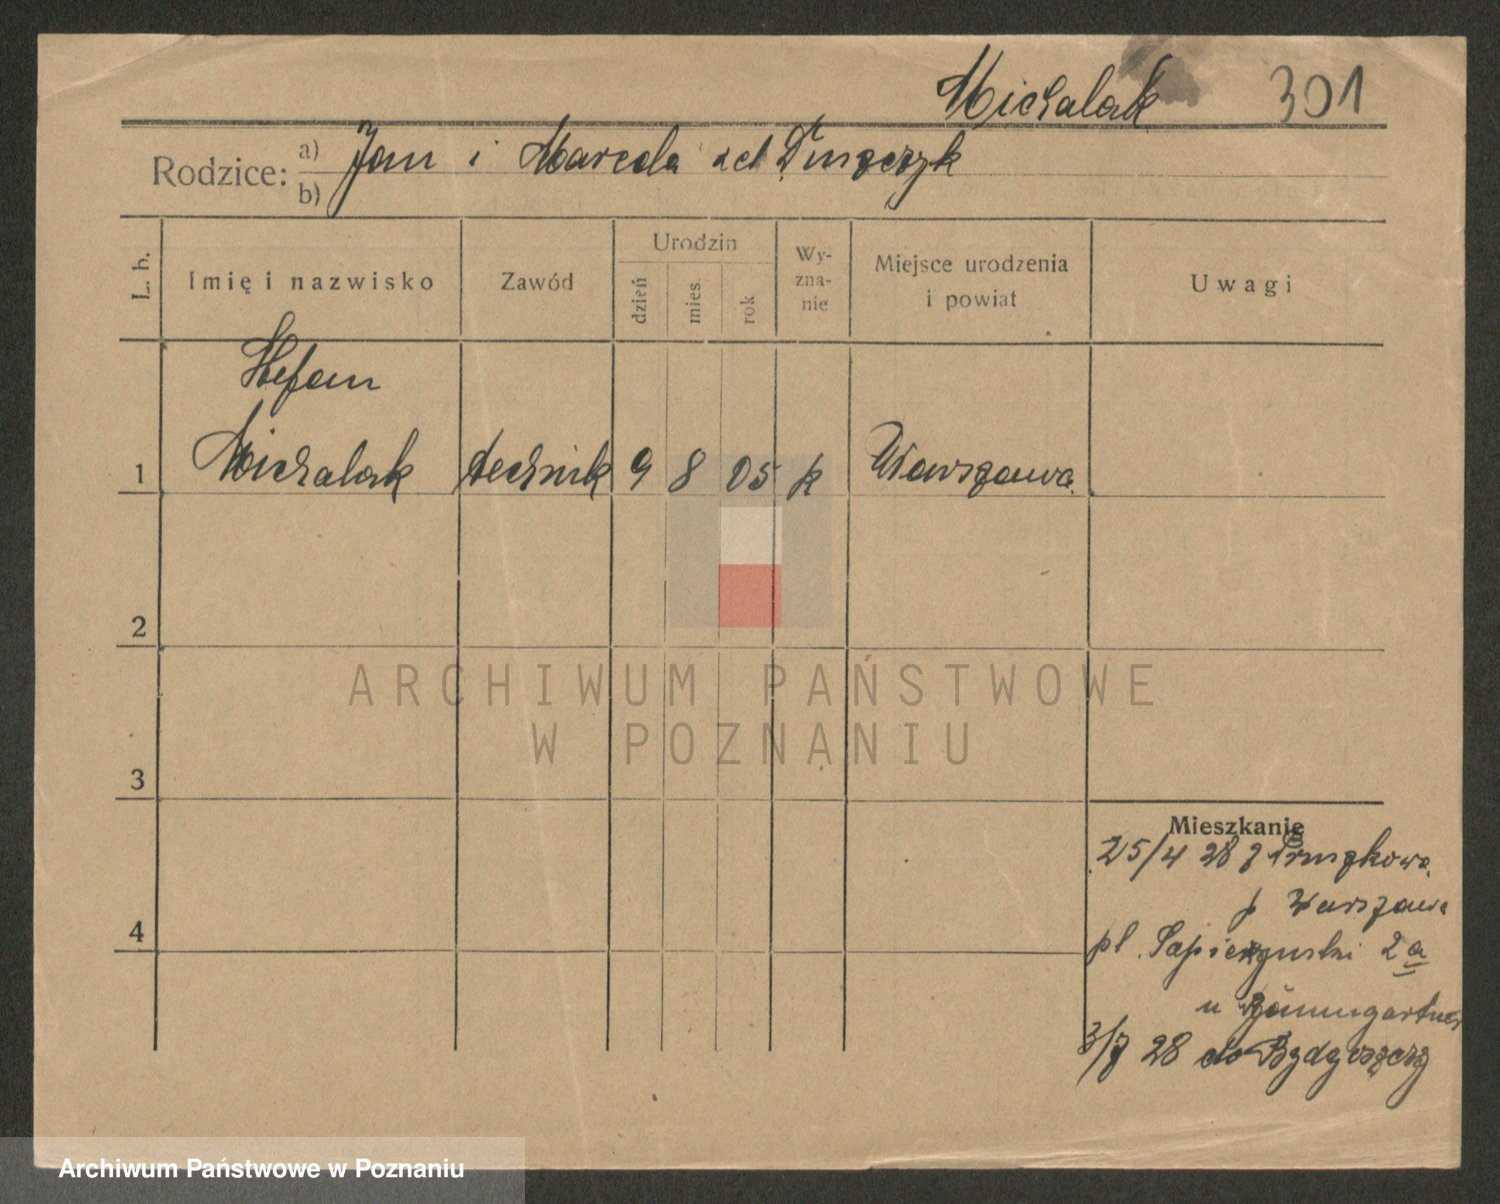 Michalak 301
Rodzice: a) Jan i Marcela zd
b)
L. b. Imię i nazwisko Zawód Urodzin dzień mies. rok Wy-zna-nie Miejsce urodzenia i powiat Uwagi
Stefan
1 Michalak technik 9 8 05 k Warszawa
2
ARCHIWUM PAŃSTWOWE
W POZNANIU
3
Mieszkanie
25/4 28 z Pruszkowa
p Warszawa
4
pl. Sapieżyński 2a
u Baumgartner
3/7 28 do Bydgoszczy
Archiwum Państwowe w Poznaniu